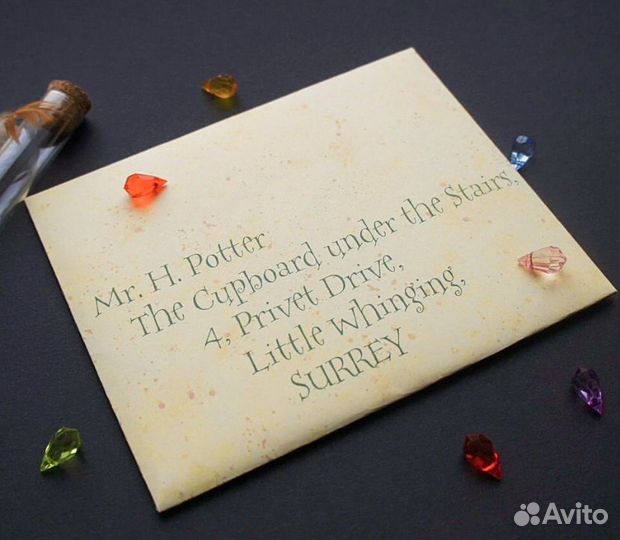 Mr. H. Potter
The Cupboard under the Stairs,
4, Privet Drive,
Little Whinging,
SURREY
Avito